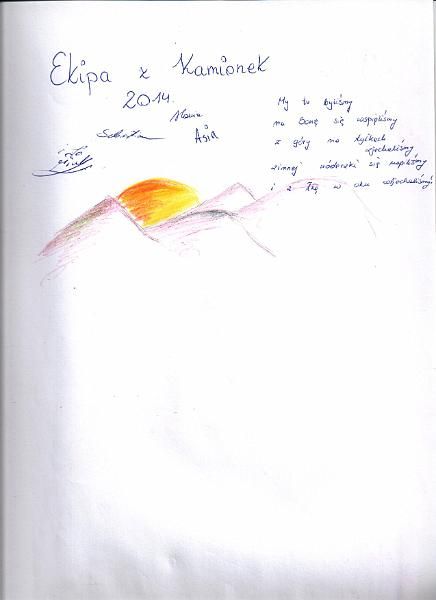 Ekipa z Kamionek
2014.
Asia
My tu byliśmy
na Sowę się wspięliśmy
z góry na tyłkach
zjechaliśmy
zimnej wódeczki się napiliśmy
i z łzą w oku odjechaliśmy